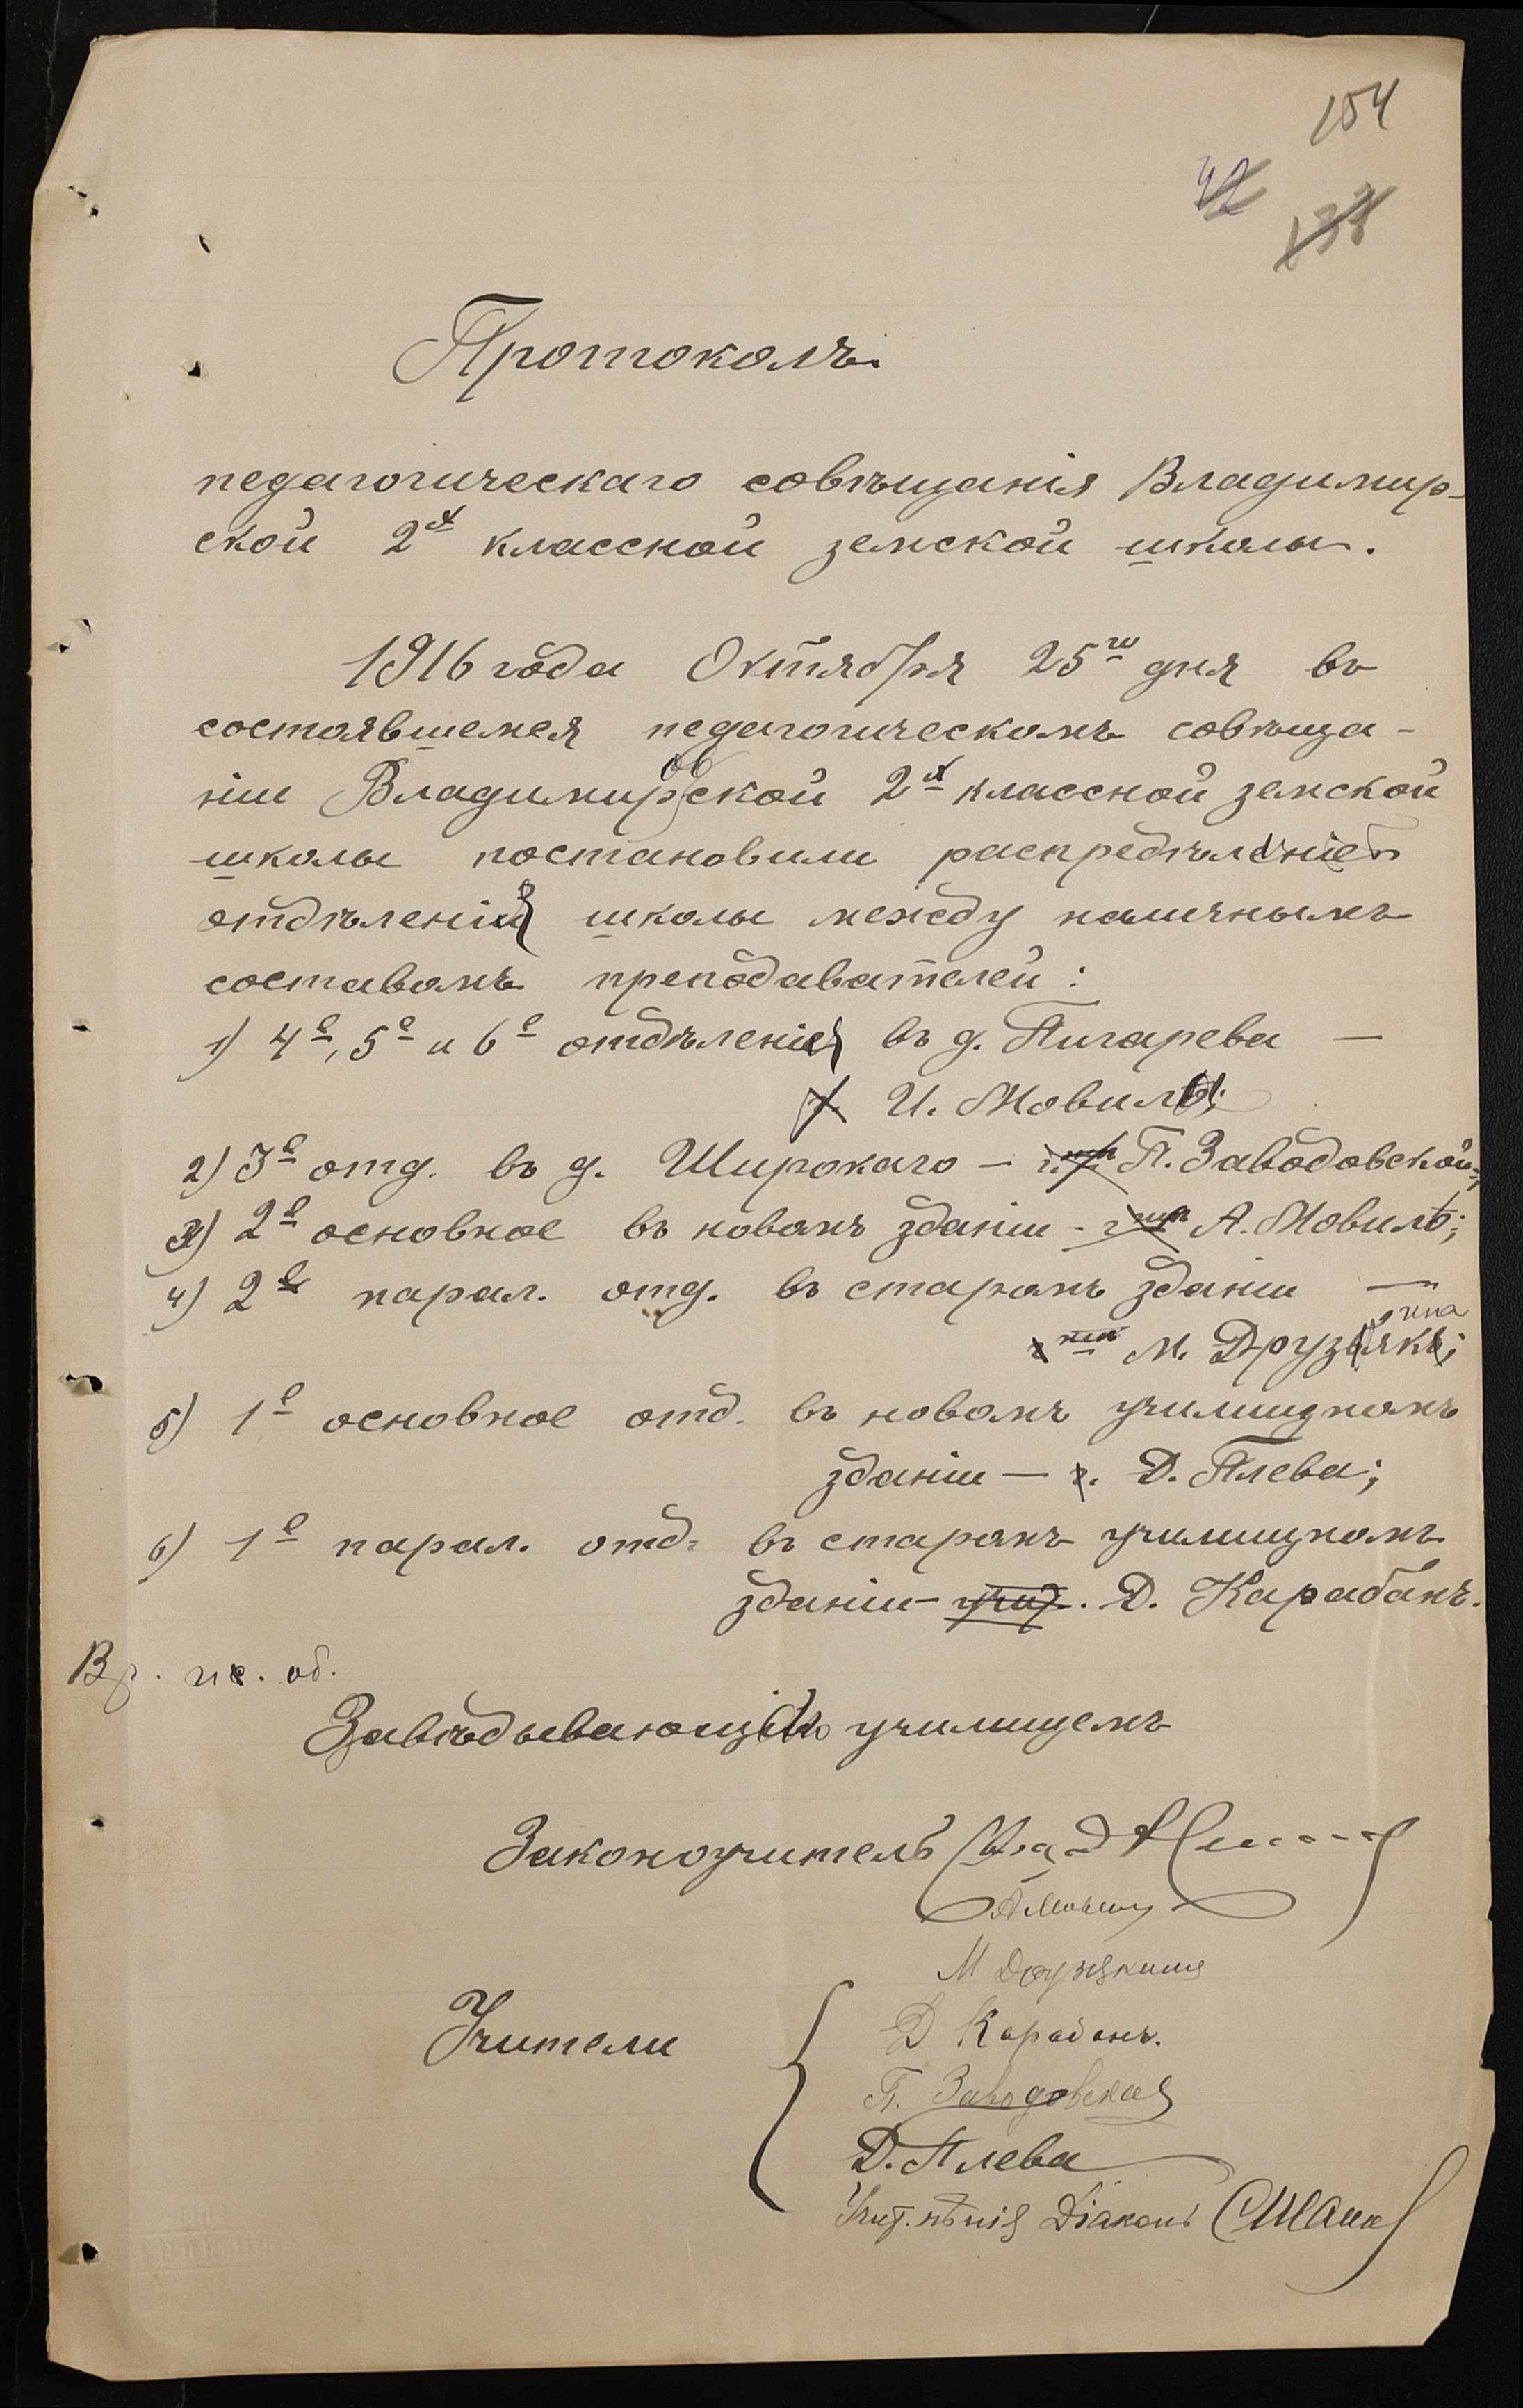 154
42
138
Протоколъ
педагогическаго совѣщанія Владимир-
ской 2х классной земской школы.
1916 года Октября 25го дня въ
состоявшемся педагогическомъ совѣща-
ніи Владимировской 2х классной земской
школы постановили распредѣленіе
отдѣленія школы между наличнымъ
составомъ преподавателей:
1) 4е, 5е и 6е отдѣленія въ д. Пигарева —
И. Мовилѣ;
2) 3е отд. въ д. Широкаго — П. Заводовской;
3) 2е основное въ новомъ зданіи - А. Мовилѣ;
4) 2е парал. отд. въ старомъ зданіи —
М. Друзякина;
5) 1е основное отд. въ новомъ училищномъ
зданіи — г. Д. Плева;
6) 1е парал. отд. въ старомъ училищномъ
зданіи - Д. Карабанъ.
Вр. ис. об.
Завѣдывающій училищемъ
Законоучитель
М Друзякина
Учители
Д Карабанъ.
П. Заводовская
Д. Плева
Учит. пѣнія Діаконъ